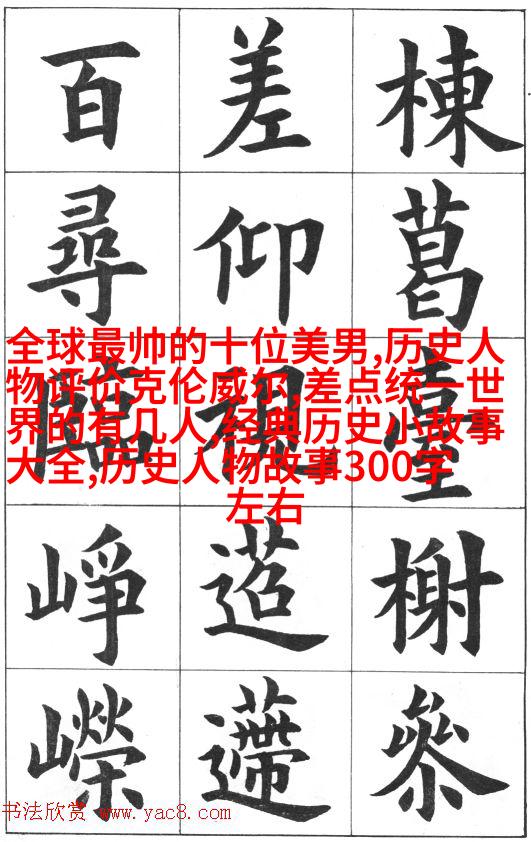 棟葛臺榭參
差仰視
百尋臨崢嶸
全球最帅的十位美男,历史人
物评价克伦威尔,差点统一世
界的有几人,经典历史小故事
大全,历史人物故事300字
左右
书法欣赏 www.yac8.com